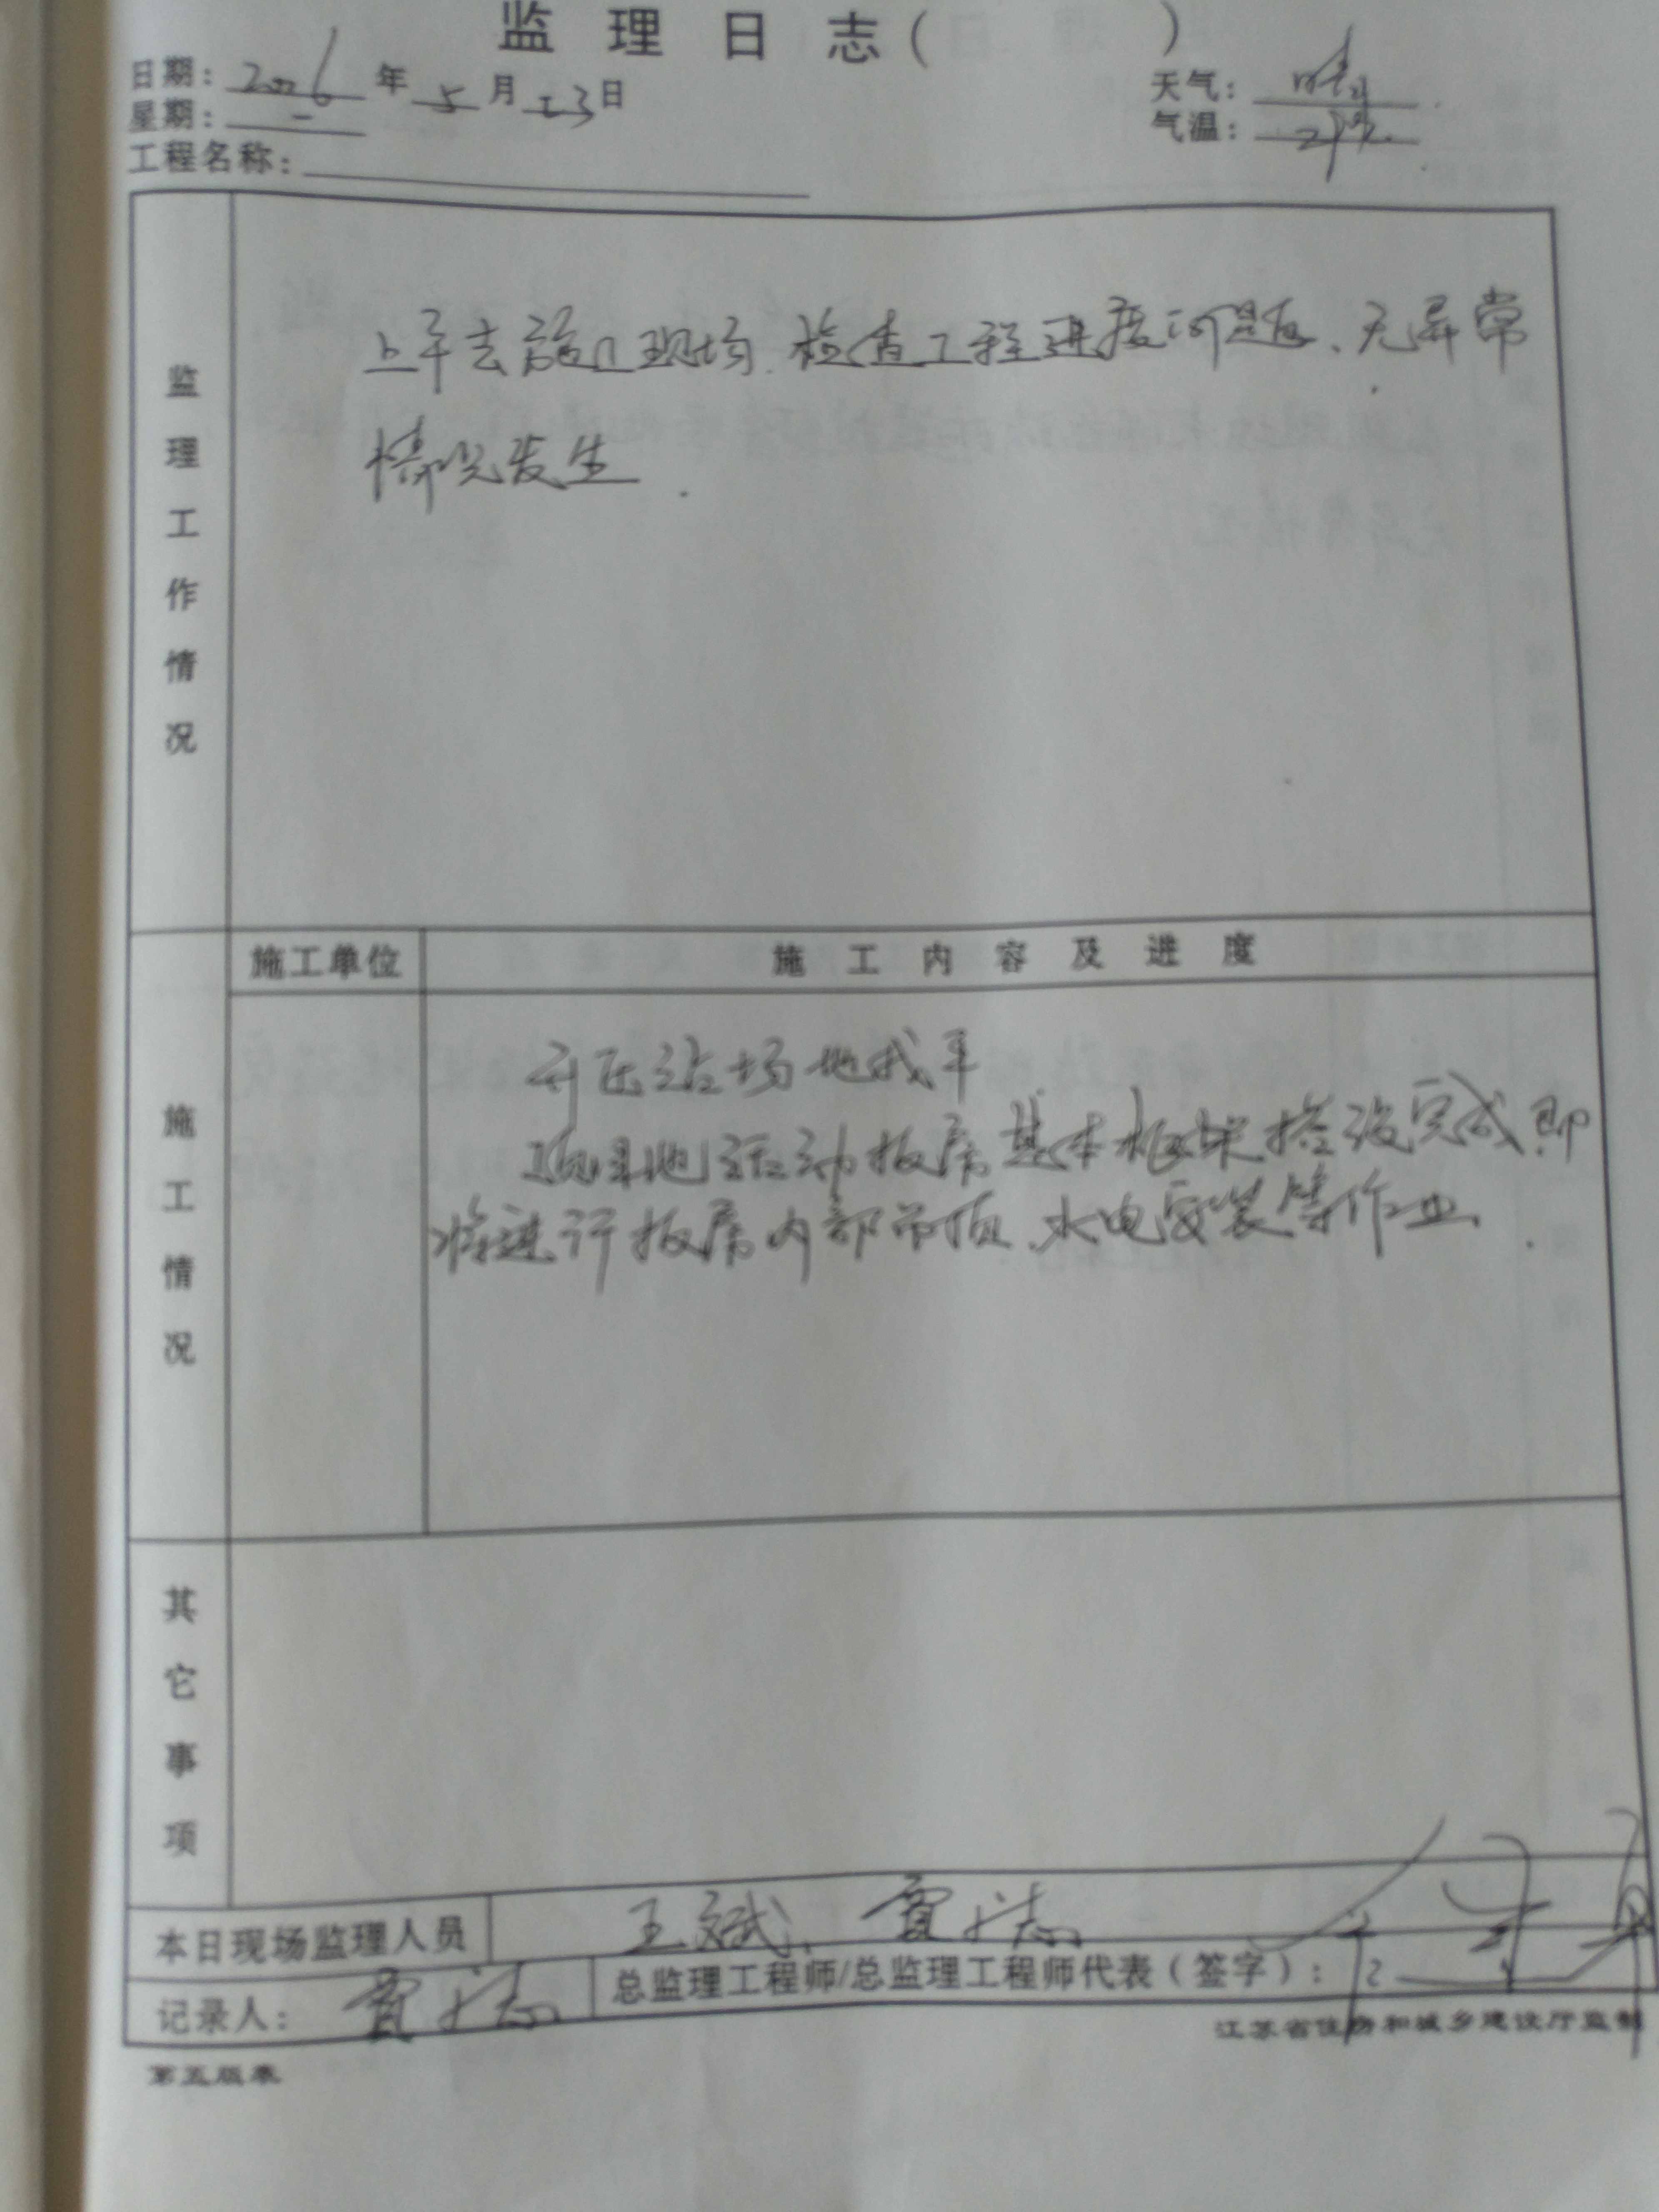 监理日志(      )
日期: 2016 年 5 月 23 日
天气: 晴
星期: 一
气温:
工程名称:
监理工作情况
上午去施工现场.检查工程进度问题、无异常
情况发生.
施工单位
施工内容及进度
施工情况
升压站场地找平
项目地活动板房基本框架搭设完成即
将进行板房内部吊顶、水电安装等作业.
其它事项
本日现场监理人员
王斌、
记录人:
总监理工程师/总监理工程师代表(签字):
江苏省住房和城乡建设厅监制
第五版表